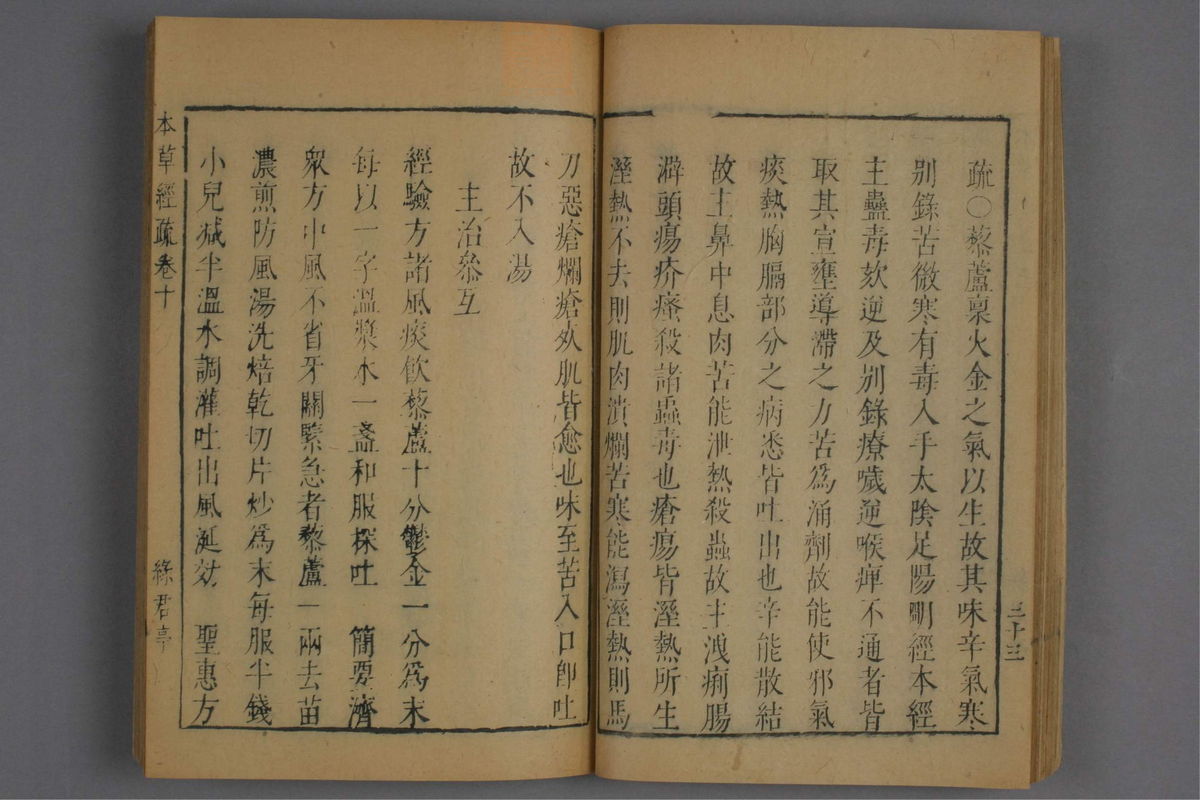 疏○藜蘆稟火金之氣以生故其味辛氣寒
別錄苦微寒有毒入手太陰足陽明經本經
主蠱毒欬逆及別錄療噦逆喉痺不通者皆
取其宣壅導滯之力苦爲涌劑故能使邪氣
痰熱胸膈部分之病悉皆吐出也辛能散結
故主鼻中息肉苦能泄熱殺蟲故主洩痢腸
澼頭瘍疥瘙殺諸蟲毒也瘡瘍皆溼熱所生
溼熱不去則肌肉潰爛苦寒能瀉溼熱則馬
三十三
刀惡瘡爛瘡死肌皆愈也味至苦入口即吐
故不入湯
主治叅互
經驗方諸風痰飲藜蘆十分鬱金一分爲末
每以一字溫漿水一盞和服探吐 簡要濟
衆方中風不省牙關緊急者藜蘆一兩去苗
濃煎防風湯洗焙乾切片炒爲末每服半錢
小兒減半溫水調灌吐出風涎効 聖惠方
本草經疏卷十
綠君亭